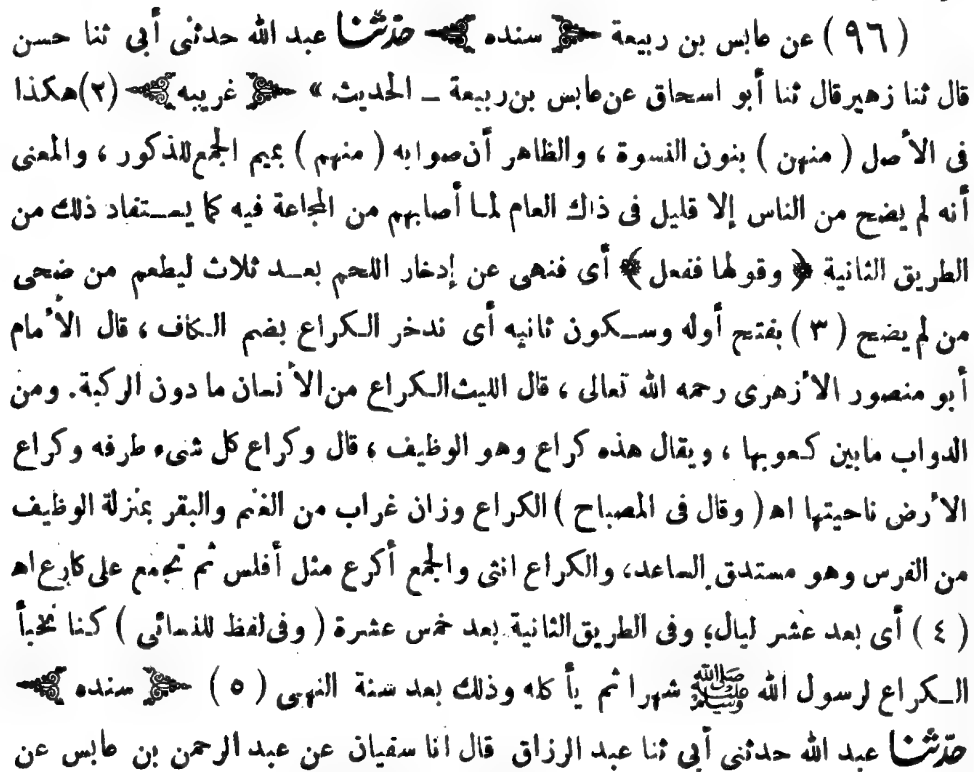 (٩٦) عن عابس بن ربيعة ﴿ سنده ﴾ حدّثنا عبد الله حدثنى أبى ثنا حسن
قال ثنا زهير قال ثنا أبو اسحاق عن عابس بن ربيعة ــ الحديث » ﴿ غريبه ﴾ (٢) هكذا
فى الأصل ( منهن ) بنون النسوة ، والظاهر أن صوابه ( منهم ) بميم الجمع للذكور ، والمعنى
أنه لم يضح من الناس إلا قليل فى ذاك العام لما أصابهم من المجاعة فيه كما يستفاد ذلك من
الطريق الثانية ﴿ وقولها ففعل ﴾ أى فنهى عن إدخار اللحم بعد ثلاث ليطعم من ضحى
من لم يضح (٣) بفتح أوله وسكون ثانيه أى ندخر الكراع بضم الكاف ، قال الأمام
أبو منصور الأزهرى رحمه الله تعالى ، قال الليث الكراع من الأنسان ما دون الركبة. ومن
الدواب مابين كعوبها ، ويقال هذه كراع وهو الوظيف ، قال وكراع كل شىء طرفه وكراع
الأرض ناحيتها اه ( وقال فى المصباح ) الكراع وزان غراب من الغنم والبقر بمنزلة الوظيف
من الفرس وهو مستدق الساعد، والكراع انثى والجمع أكرع مثل أفلس ثم تجمع على كارع اه
(٤) أى بعد عشر ليال، وفى الطريق الثانية بعد خمس عشرة ( وفى لفظ للنسائى ) كنا نخبأ
الكراع لرسول الله ﷺ شهرا ثم يأكله وذلك بعد سنة النهى (٥) ﴿ سنده ﴾
حدّثنا عبد الله حدثنى أبى ثنا عبد الرزاق قال انا سفيان عن عبد الرحمن بن عابس عن